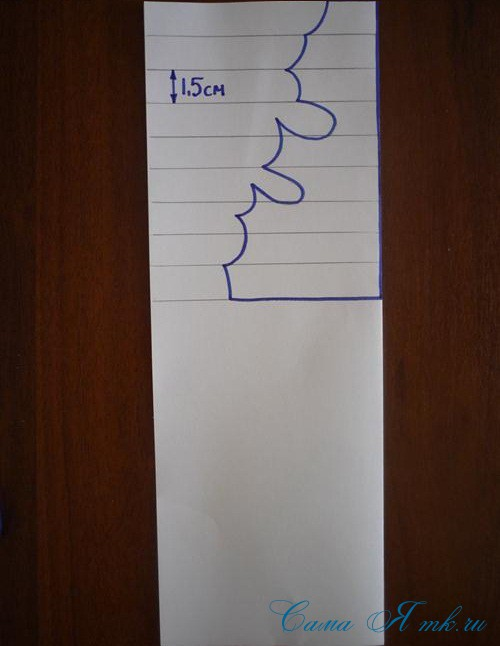 1,5см
Сама Я mk.ru